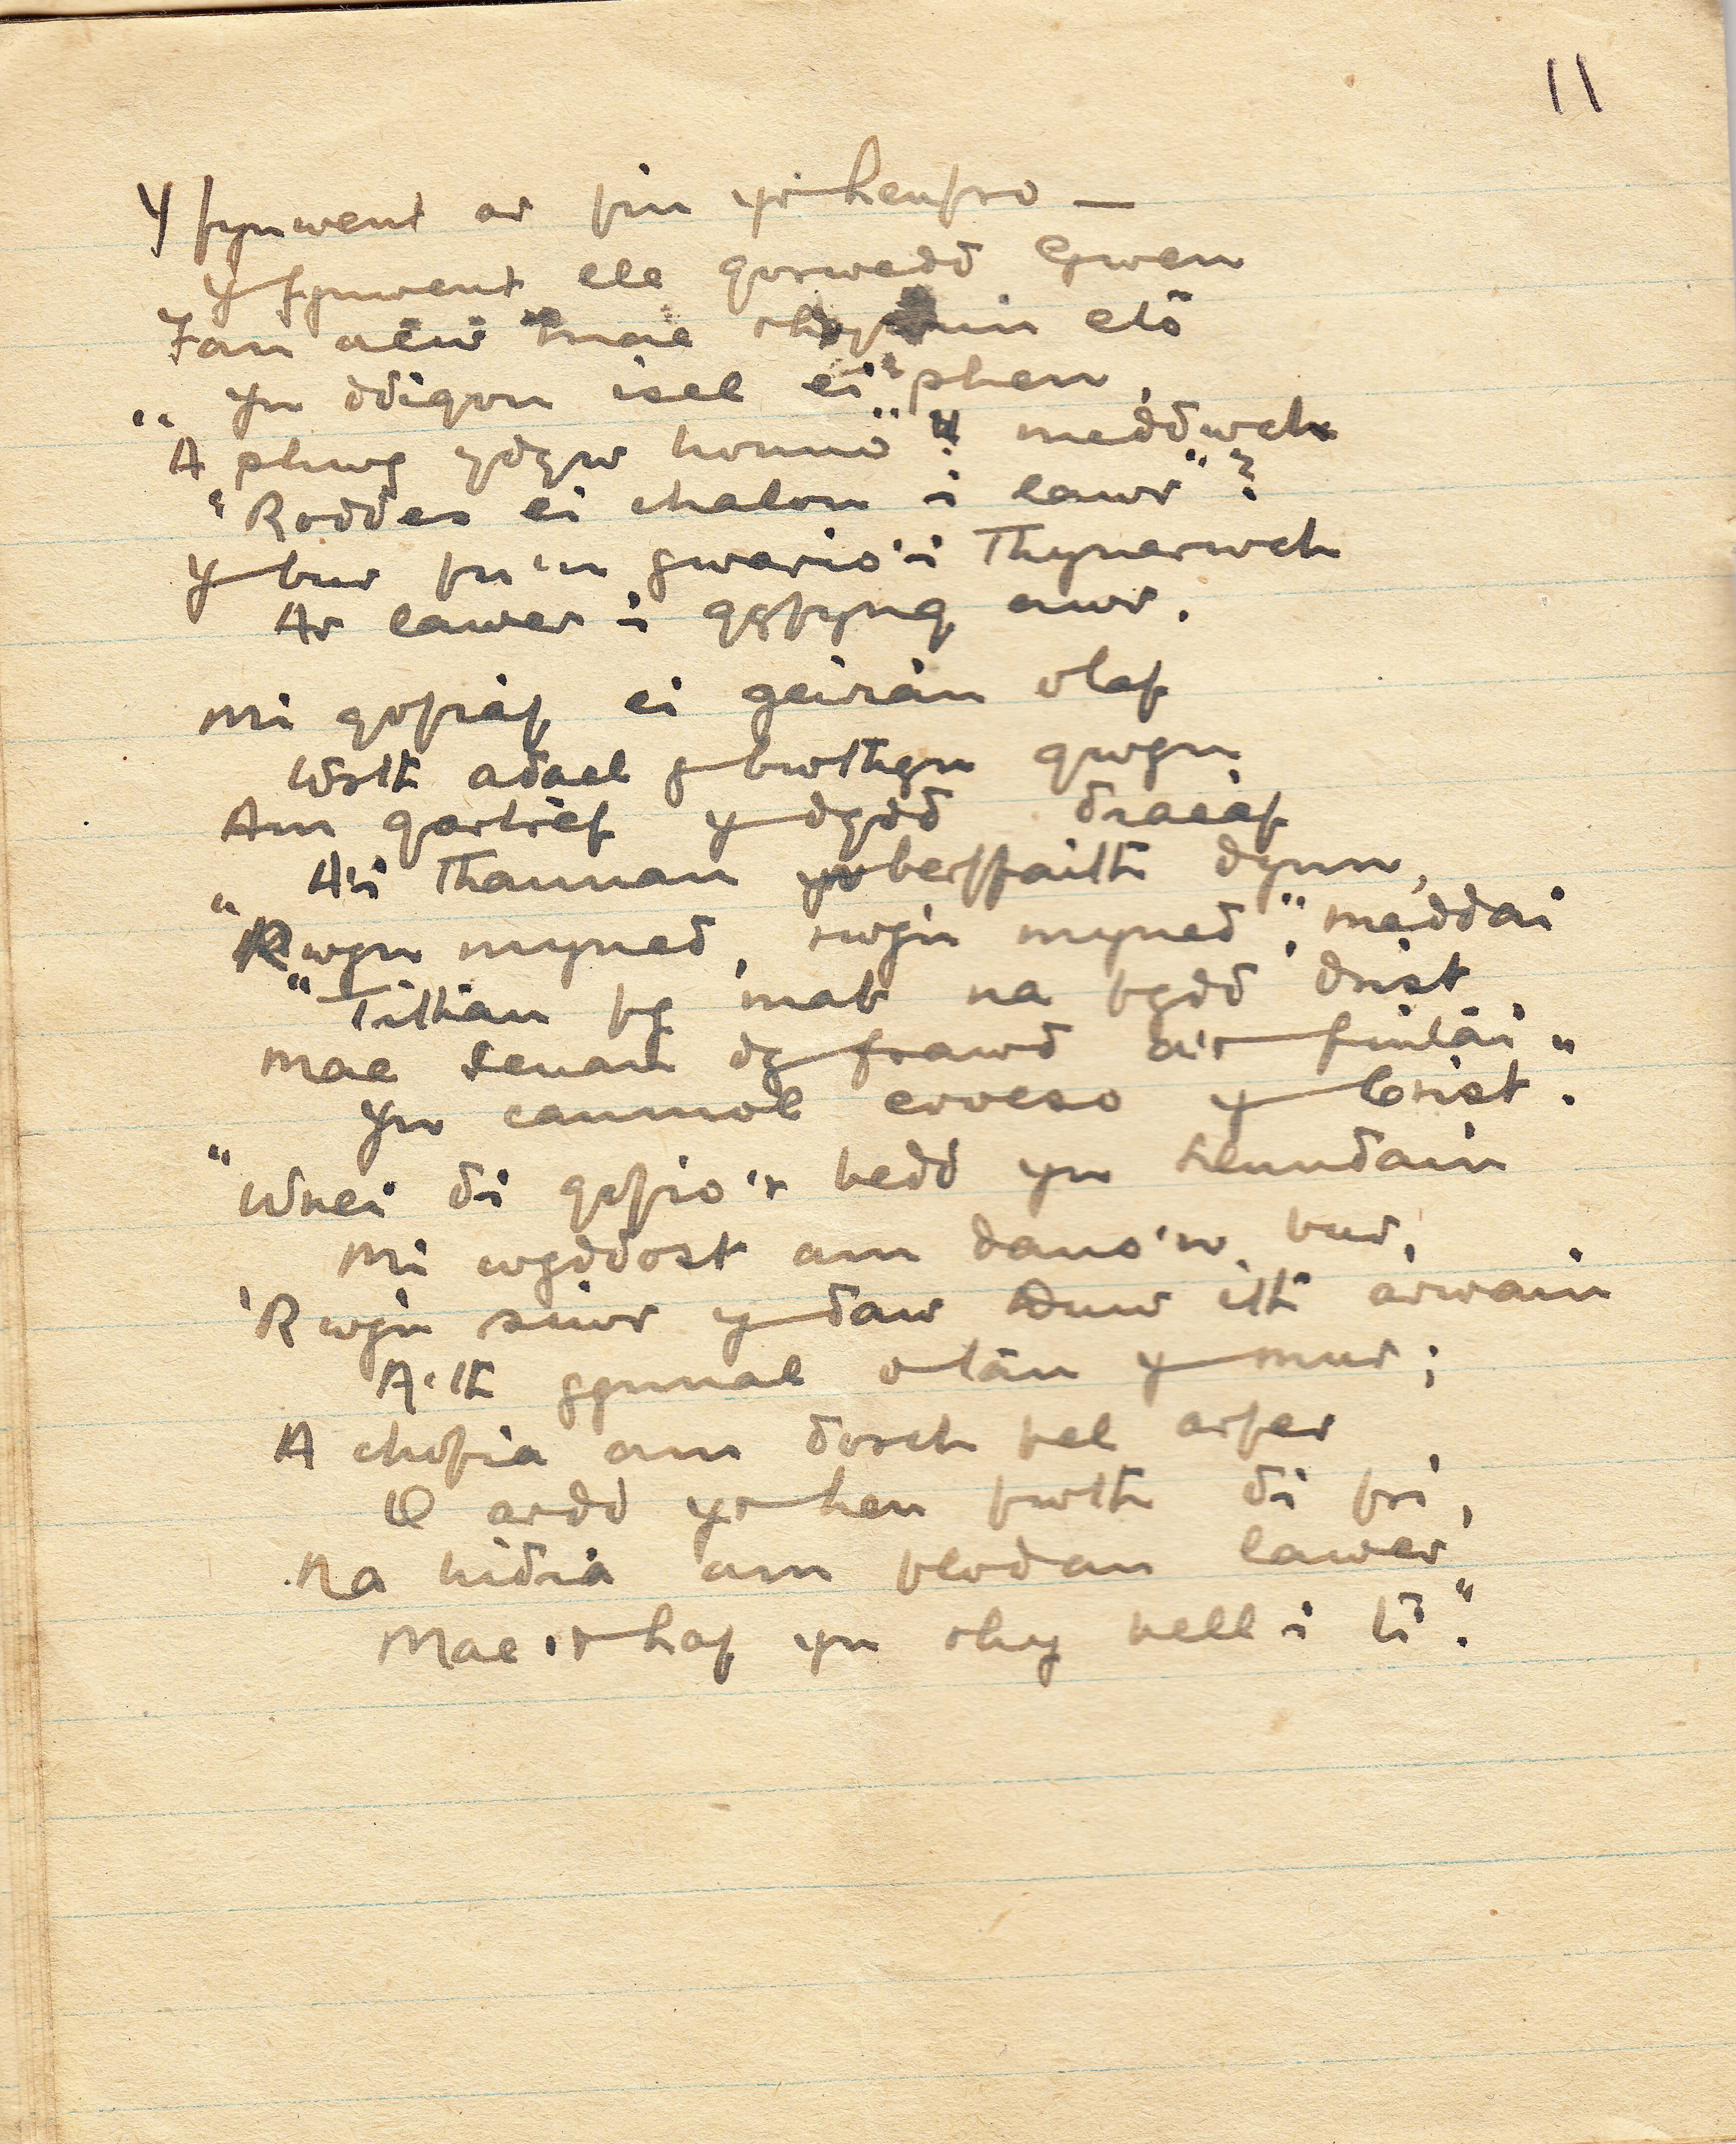 11
Y fynwent ar fin yr henfro —
Y fynwent lle gorwedd Gwen
Fan acw mae rhywun eto
Yn ddigon isel ei phen,
"A phwy ydyw honno"? meddwch
"Roddes ei chalon i lawr"?
Y bur fu'n gwario'i thynerwch
Ar lawer i gyfyng awr.
Mi gofiaf ei geiriau olaf
Wrth adael y bwthyn gwyn
Am gartref y dydd
A'i thannau yn berffaith dynn,
"Rwyn myned, rwy'n myned", meddai
"Tithau fy mab na fydd drist,
Mae Ieuan dy frawd a'r fintai
Yn canmol croeso y Crist."
"Wnei di gofio'r bedd yn
Mi wyddost am dano'n bur,
'Rwy'n siwr y daw Duw i'th arwain
A'th gynnal o tan y mur;
A chofia am dorch fel arfer
O ardd yr hen fwth di fri,
Na hidia am flodau lawer
Mae'r haf yn rhy bell i ti."